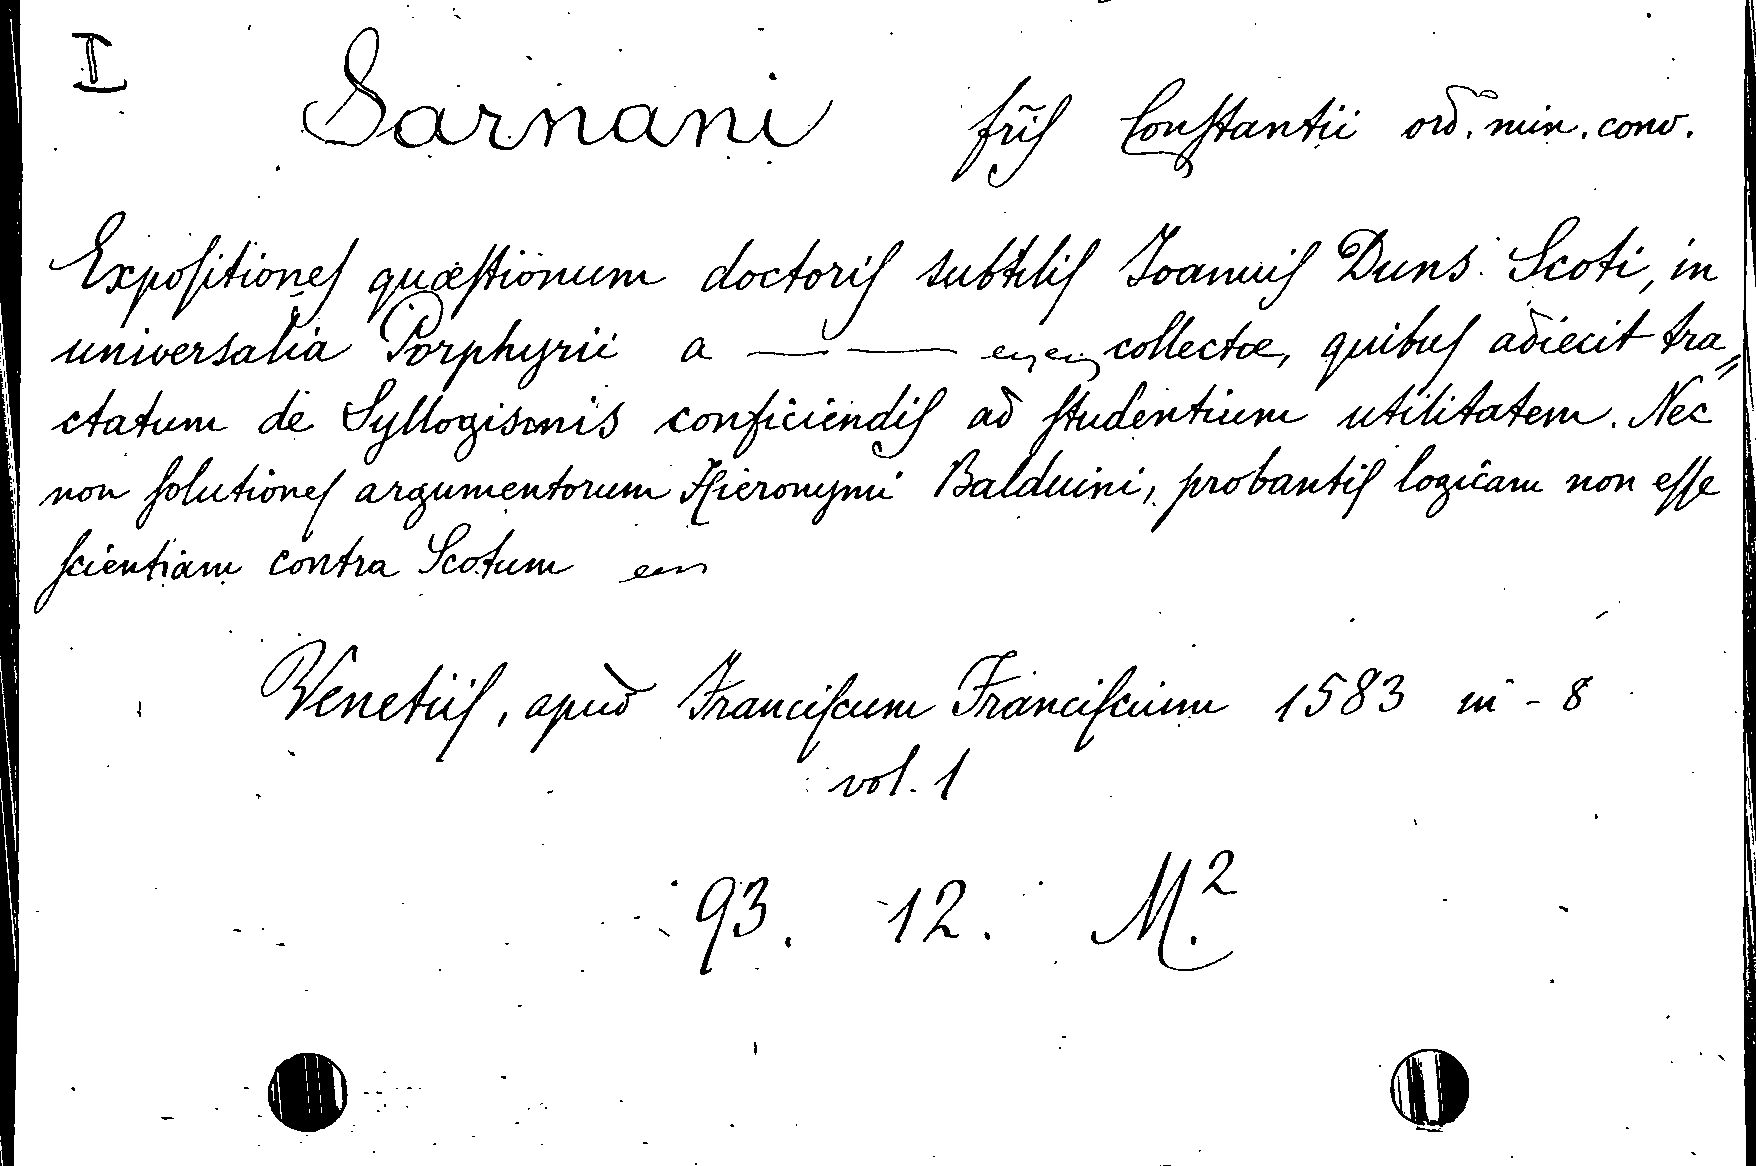 I Sarnani frĩs Constantii ord. min. conv.
Expositiones quæstionum doctoris subtilis Joannis Duns Scoti, in
universalia Porphyrii a — — collectæ, quibus adiecit tra„
ctatum de Syllogismis conficiendis ad studentium utilitatem. Nec
non solutiones argumentorum Hieronymi Balduini, probantis logicam non esse
scientiam contra Scotum
Venetiis, apud Franciscum Franciscium 1583 in - 8
vol. 1
93. 12. M.²